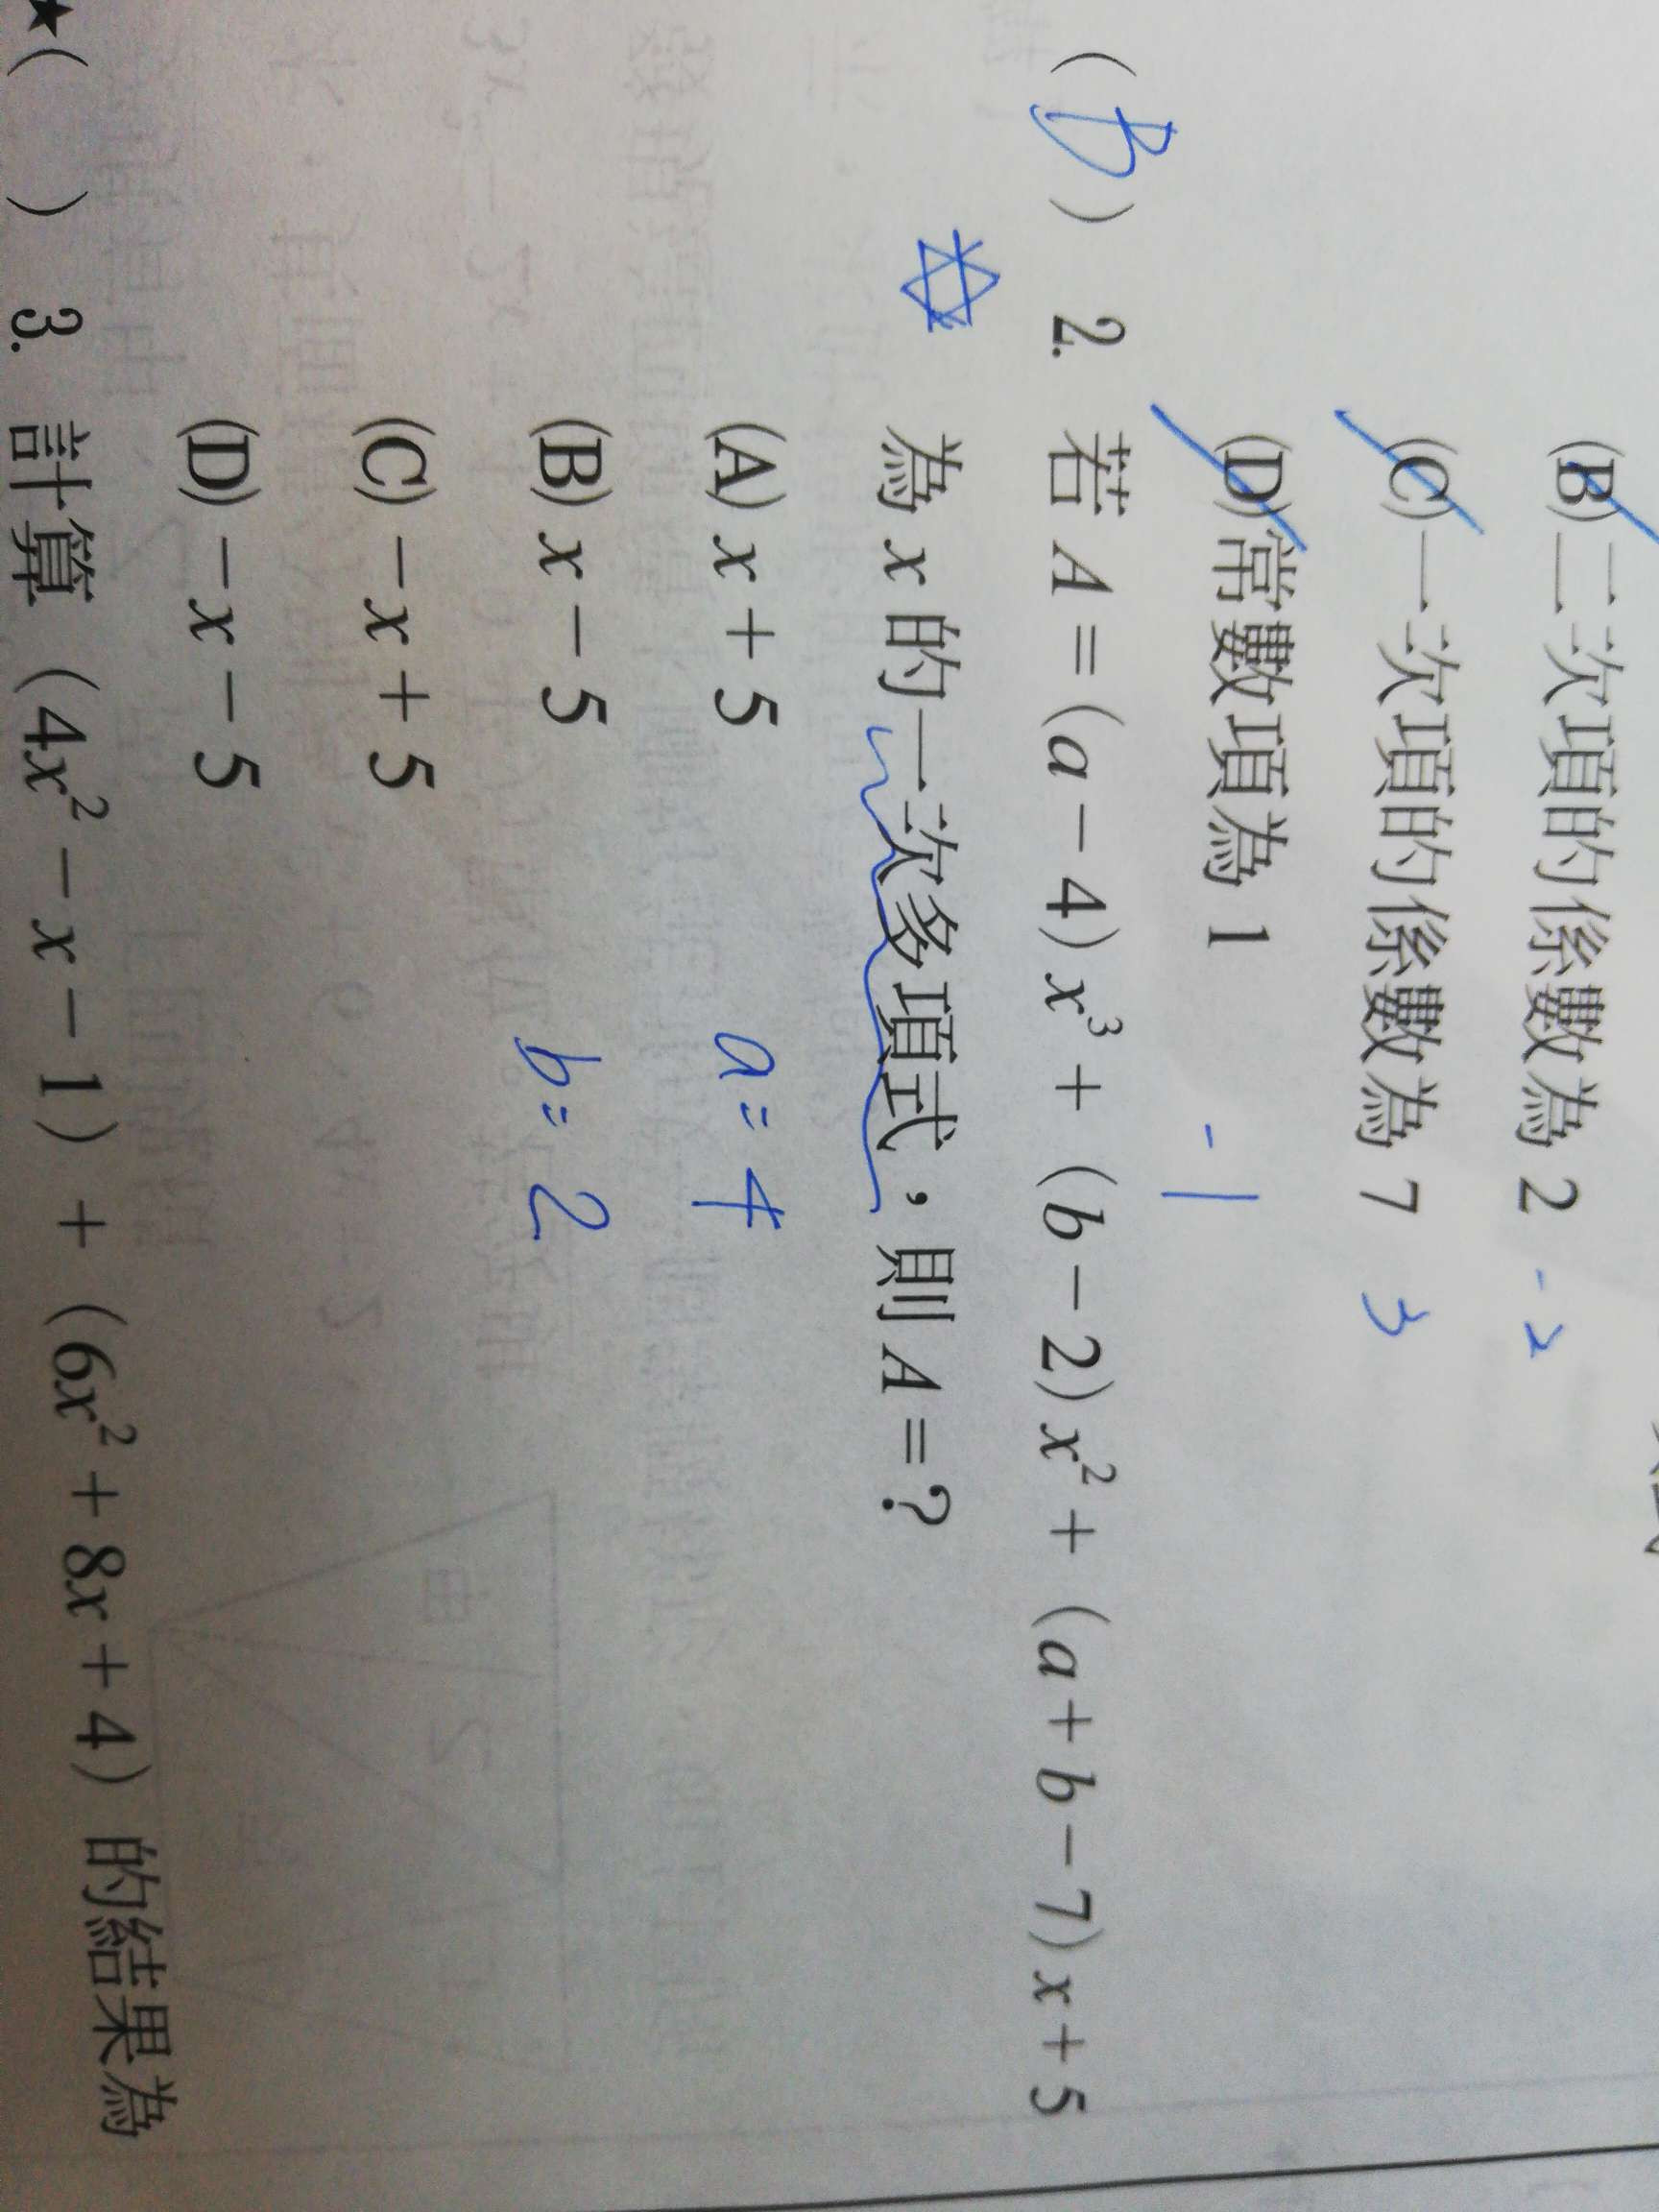 (B)二次項的係數為 2 -2
(C)一次項的係數為 7 3
(D)常數項為 1 -1
(B) 2. 若 A = (a - 4) x³ + (b - 2) x² + (a + b - 7) x + 5
為 x 的一次多項式，則 A = ?
(A) x + 5 a = 4
(B) x - 5 b = 2
(C) - x + 5
(D) - x - 5
★( ) 3. 計算 (4x² - x - 1) + (6x² + 8x + 4) 的結果為